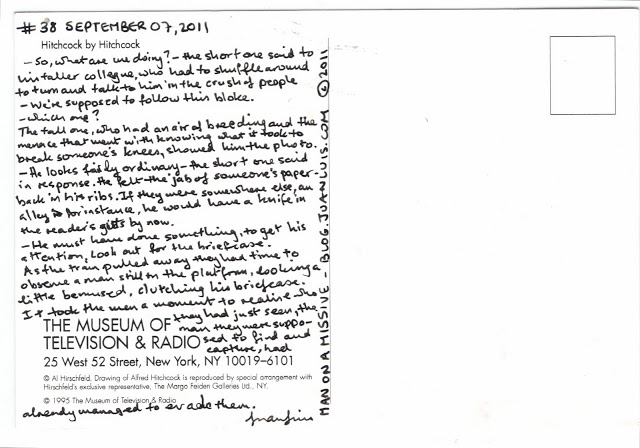 # 38 SEPTEMBER 07, 2011
Hitchcock by Hitchcock
- So, what are we doing? - the short one said to
his taller collegue, who had to shuffle around
to turn and talk to him in the crush of people
- We're supposed to follow this bloke.
- Which one?
The tall one, who had an air of breeding and the
menace that went with knowing what it took to
break someone's knees, showed him the photo.
- He looks fairly ordinary - the short one said
in response. He felt the jab of someone's paper-
back in his ribs. If they were somewhere else, an
alley for instance, he would have a knife in
the reader's guts by now.
- He must have done something, to get his
attention. Look out for the briefcase.
As the train pulled away they had time to
observe a man still on the platform, looking a
little bemused, clutching his briefcase.
It took the men a moment to realise who
they had just seen, the
man they were suppo-
sed to find and
capture, had
THE MUSEUM OF
TELEVISION & RADIO
25 West 52 Street, New York, NY 10019-6101
© Al Hirschfeld. Drawing of Alfred Hitchcock is reproduced by special arrangement with
Hirschfeld's exclusive representative, The Margo Feiden Galleries Ltd., NY.
© 1995 The Museum of Television & Radio
already managed to evade them.
JuanLuis
MAN ON A MISSIVE - BLOG.JUANLUIS.COM © 2011